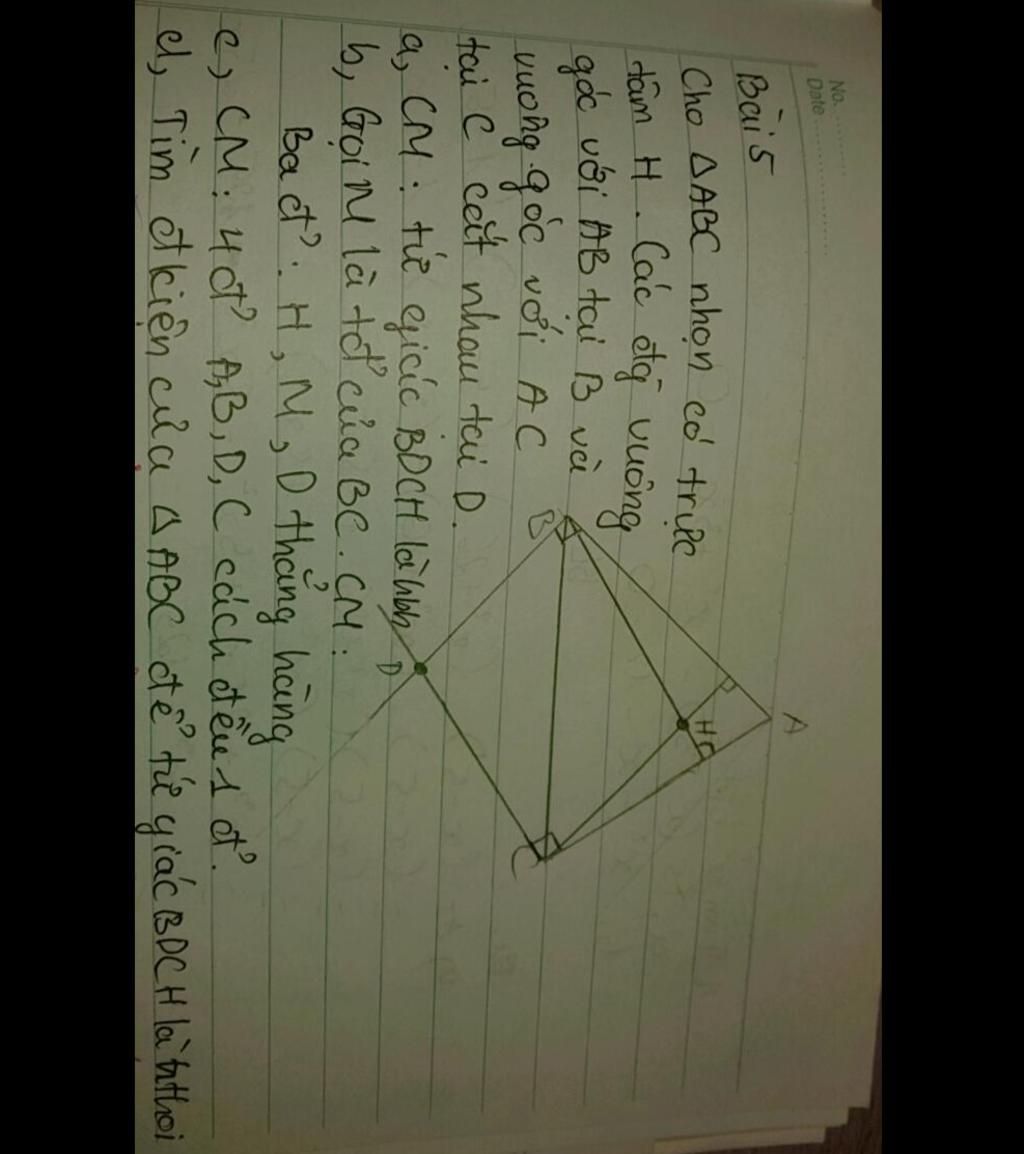 No. ............
Date ..................
Bài 5
Cho ΔABC nhọn có trực
tâm H. Các đg̀ vuông
góc với AB tại B và
vuông góc với AC
tại C cắt nhau tại D.
a, CM: tứ giác BDCH là hbh
b, Gọi M là tđ' của BC. CM:
Ba đ': H, M, D thẳng hàng
c, CM: 4 đ' A, B, D, C cách đều 1 đ'.
d, Tìm đkiện của Δ ABC để tứ giác BDCH là hthoi
A
H
B
C
D